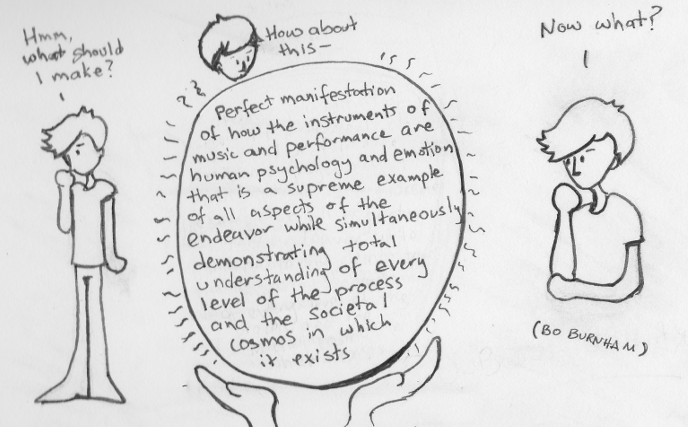 Hmm,
what should
I make?
How about
this–
Perfect manifestation
of how the instruments of
music and performance are
human psychology and emotion
that is a supreme example
of all aspects of the
endeavor while simultaneously
demonstrating total
understanding of every
level of the process
and the societal
cosmos in which
it exists
Now what?
(BO BURNHAM)